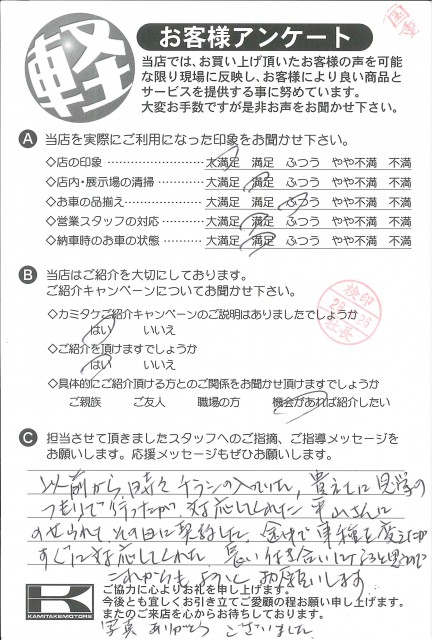 国産
軽
お客様アンケート
当店では、お買い上げ頂いたお客様の声を可能
な限り現場に反映し、お客様により良い商品と
サービスを提供する事に努めています。
大変お手数ですが是非お声をお聞かせ下さい。
A 当店を実際にご利用になった印象をお聞かせ下さい。
◇店の印象 ………………… 大満足 満足 ふつう やや不満 不満
◇店内・展示場の清掃………… 大満足 満足 ふつう やや不満 不満
◇お車の品揃え……………… 大満足 満足 ふつう やや不満 不満
◇営業スタッフの対応………… 大満足 満足 ふつう やや不満 不満
◇納車時のお車の状態………… 大満足 満足 ふつう やや不満 不満
B 当店はご紹介を大切にしてあります。
ご紹介キャンペーンについてお聞かせ下さい。
◇カミタケご紹介キャンペーンのご説明はありましたでしょうか
はい いいえ
◇ご紹介を頂けますでしょうか
はい いいえ
◇具体的にご紹介頂ける方とのご関係をお聞かせ頂けますでしょうか
ご親族 ご友人 職場の方 機会があれば紹介したい
検印
社長
C 担当させて頂きましたスタッフへのご指摘、ご指導メッセージを
お願いします。応援メッセージもぜひお願いします。
以前から、時々チラシの入っていた、買えしに見学の
つもりで行ったが、対応してくれた 平山さんに
のせられて、その日に契約した。
すぐに対応してくれた 長い付き合いになると思うので
これからも よろしく お願いします
ご協力に心よりお礼を申し上げます。
今後とも宜しくお引き立てご愛顧の程お願い申し上げます。
またのご来店を心からお待ちしております。
KAMITAKEMOTORS
写真 ありがとう ございました